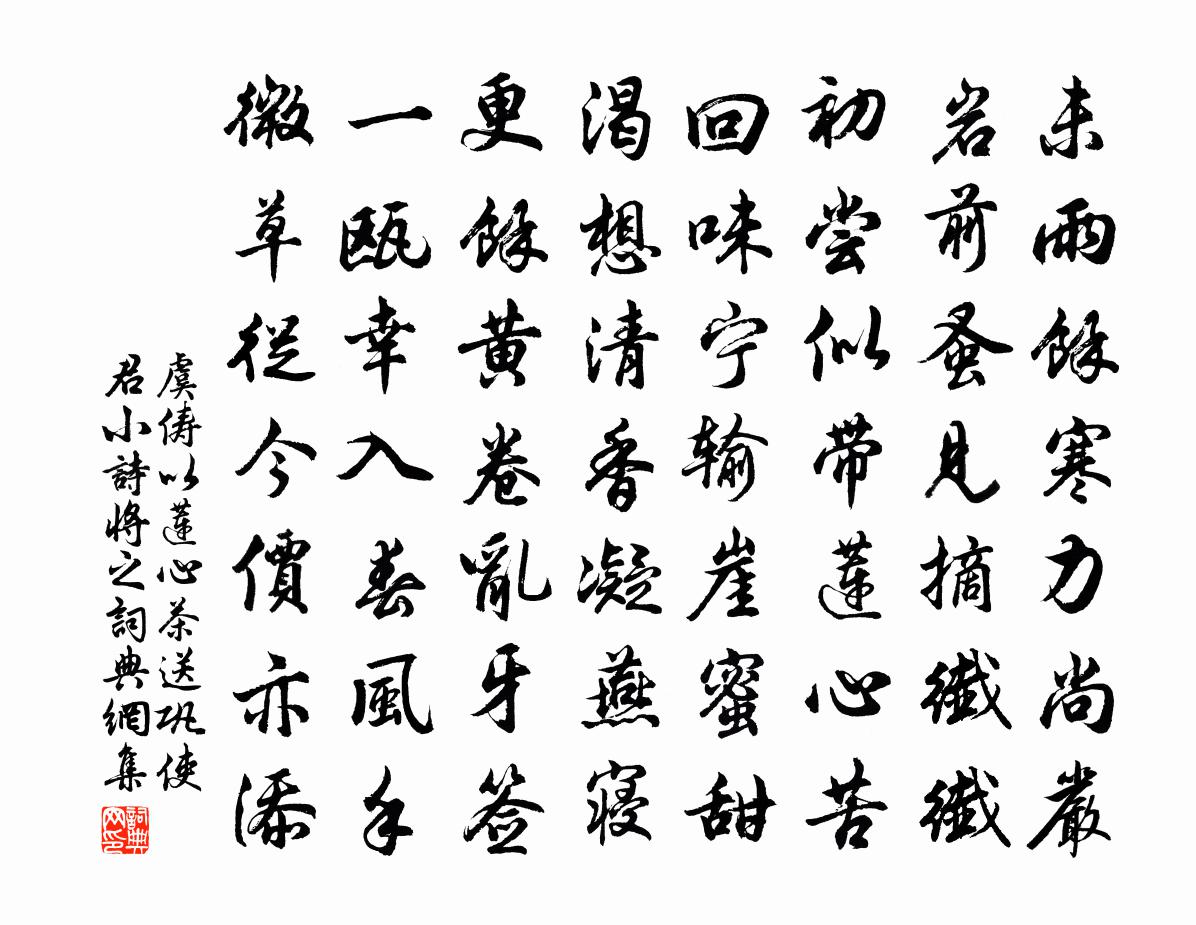 未雨餘寒力尚嚴
岩前蚤見摘纖纖
初尝似带蓮心苦
回味宁输崖蜜甜
渴想清香凝燕寝
更餘黄卷亂牙签
一瓯幸入春風手
微草從今價亦添
虞俦以蓮心茶送巩使
君小詩将之詞典網集
詞典网印